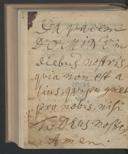 Da pacem
Domine in
diebus nostris
quia non est a
lius qui pugnet
pro nobis, nisi
tu Deus noster
Amen.